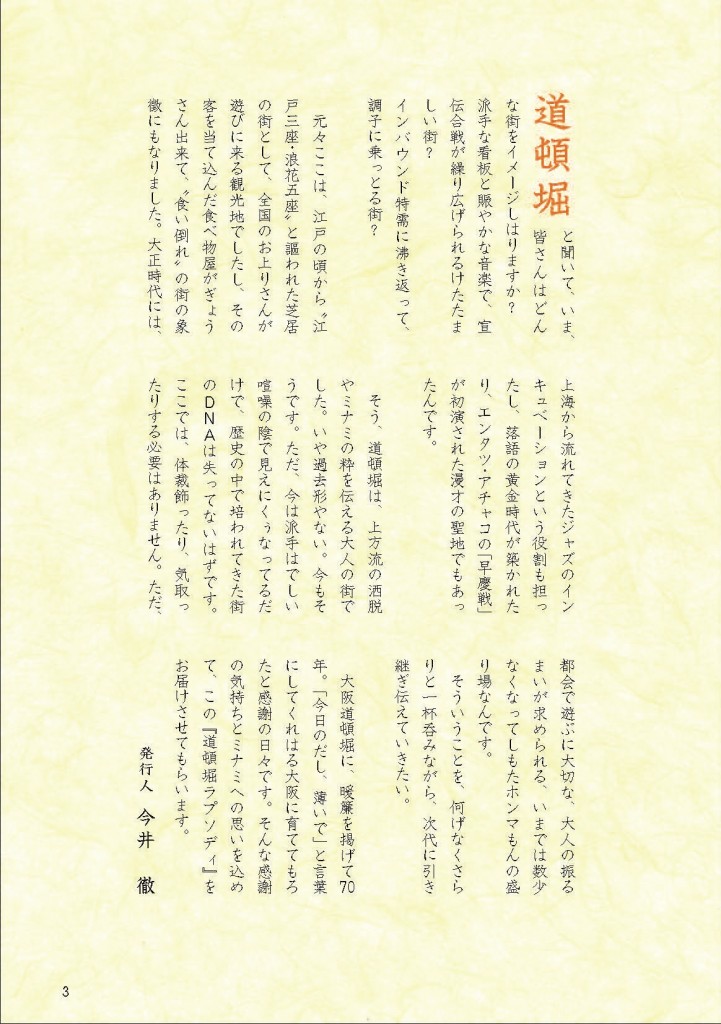 道頓堀
と聞いて、いま、
皆さんはどん
な街をイメージしはりますか？
派手な看板と賑やかな音楽で、宣
伝合戦が繰り広げられるけたたま
しい街？
インバウンド特需に沸き返って、
調子に乗っとる街？
元々ここは、江戸の頃から〝江
戸三座・浪花五座〟と謳われた芝居
の街として、全国のお上りさんが
遊びに来る観光地でしたし、その
客を当て込んだ食べ物屋がぎょう
さん出来て、〝食い倒れ〟の街の象
徴にもなりました。大正時代には、
上海から流れてきたジャズのイン
キュベーションという役割も担っ
たし、落語の黄金時代が築かれた
り、エンタツ・アチャコの「早慶戦」
が初演された漫才の聖地でもあっ
たんです。
そう、道頓堀は、上方流の洒脱
やミナミの粋を伝える大人の街で
した。いや過去形やない。今もそ
うです。ただ、今は派手はでしい
喧噪の陰で見えにくぅなってるだ
けで、歴史の中で培われてきた街
のDNAは失ってないはずです。
ここでは、体裁飾ったり、気取っ
たりする必要はありません。ただ、
都会で遊ぶに大切な、大人の振る
まいが求められる、いまでは数少
なくなってしもたホンマもんの盛
り場なんです。
そういうことを、何げなくさら
りと一杯呑みながら、次代に引き
継ぎ伝えていきたい。
大阪道頓堀に、暖簾を掲げて70
年。「今日のだし、薄いで」と言葉
にしてくれはる大阪に育ててもろ
たと感謝の日々です。そんな感謝
の気持ちとミナミへの思いを込め
て、この『道頓堀ラプソディ』を
お届けさせてもらいます。
発行人 今井 徹
3